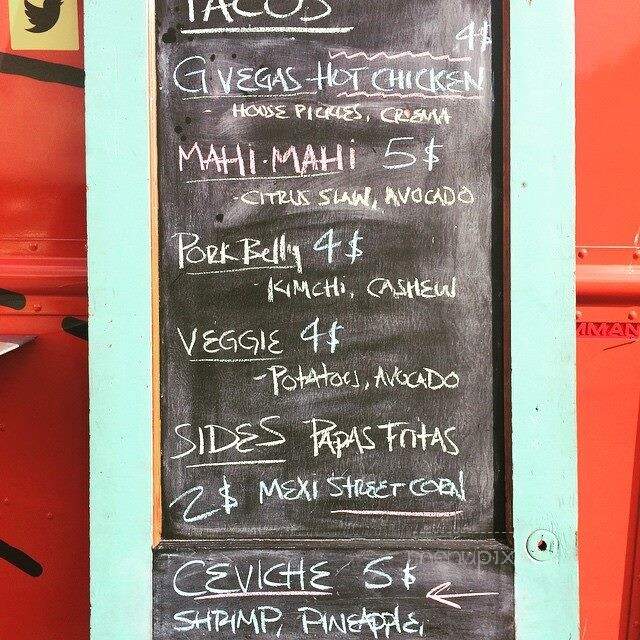 TACOS
4$
G VEGAS HOT CHICKEN
- HOUSE PICKLES, CREMA
MAHI-MAHI 5$
- CITRUS SLAW, AVOCADO
PORK Belly 4$
- KIMCHI, CASHEW
VEGGIE 4$
- POTATOES, AVOCADO
SIDES PAPAS FRITAS
2$ MEXI STREET CORN
CEVICHE 5$
SHRIMP, PINEAPPLE,
menupix
MMAN